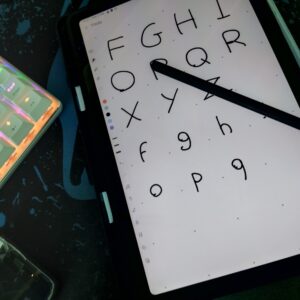 F G H I
O P Q R
X Y Z
f g h
o p q